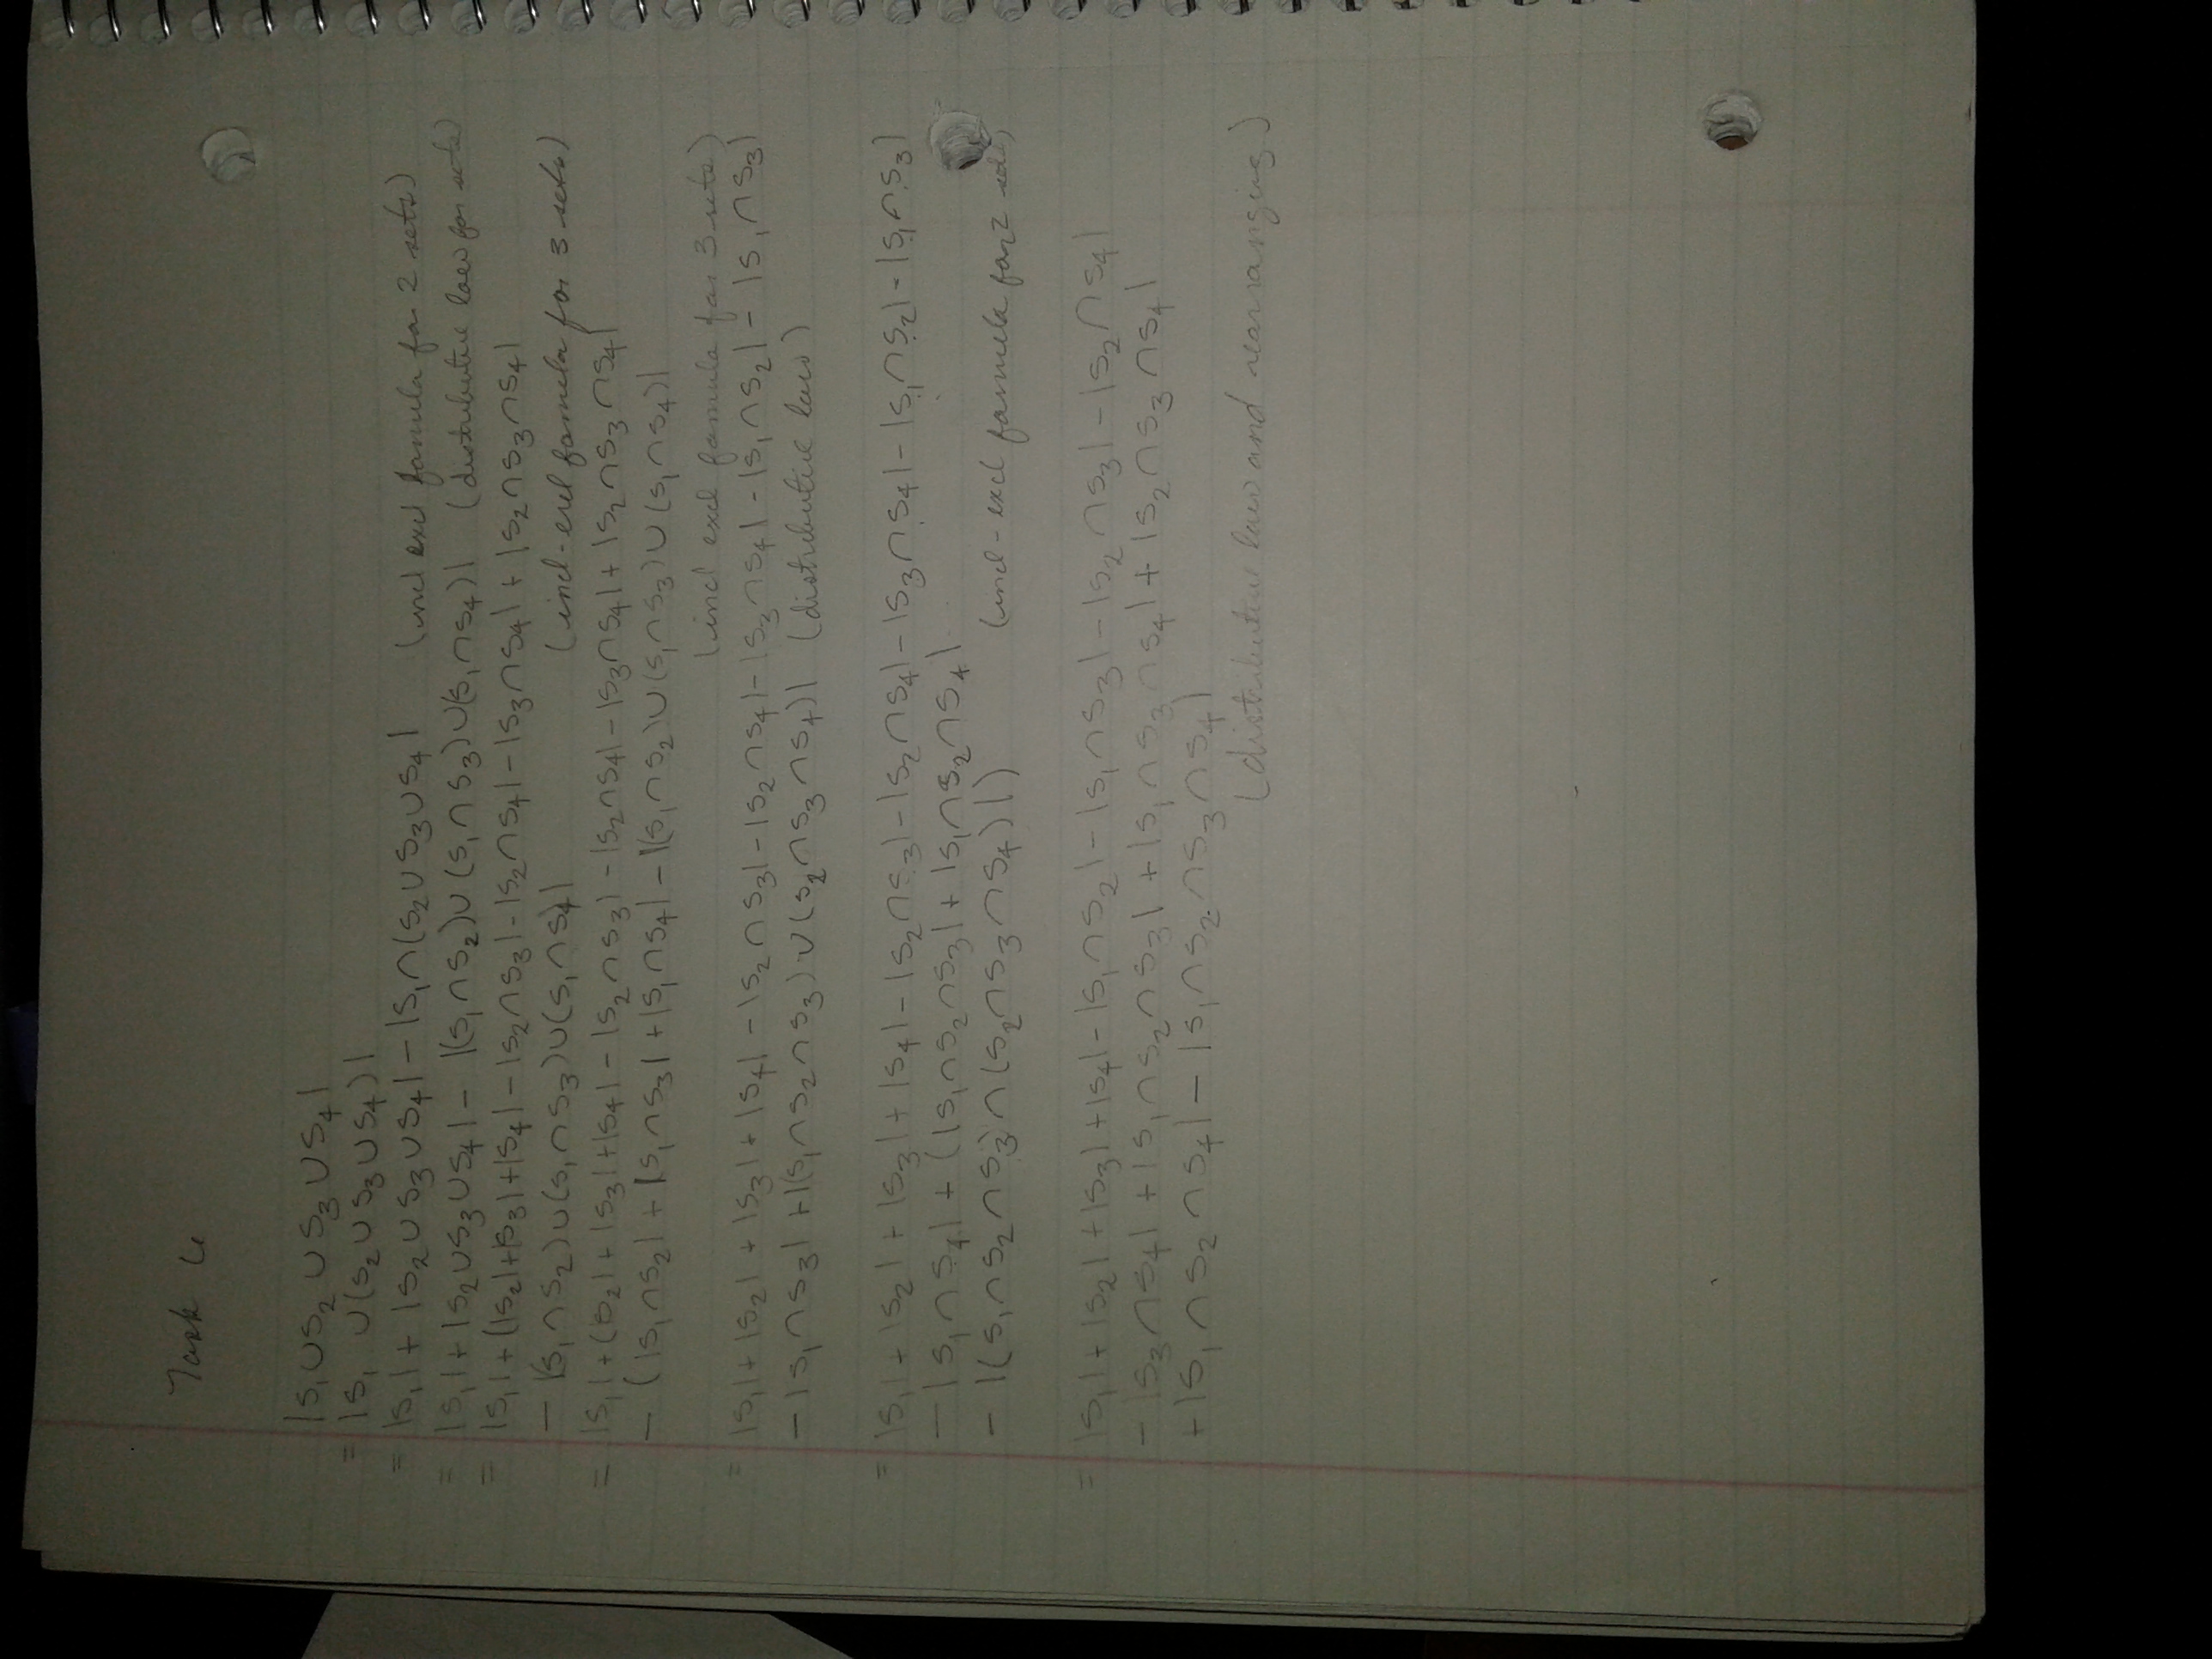 Task 6
|S₁∪S₂∪S₃∪S₄|
= |S₁ ∪(S₂∪S₃∪S₄)|
= |S₁|+|S₂∪S₃∪S₄|-|S₁∩(S₂∪S₃∪S₄| (incl excl formula for 2 sets)
= |S₁|+|S₂∪S₃∪S₄|-|(S₁∩S₂)∪(S₁∩S₃)∪(S₁∩S₄)| (distributive law for sets)
= |S₁|+(|S₂|+|S₃|+|S₄|-|S₂∩S₃|-|S₂∩S₄|-|S₃∩S₄|+|S₂∩S₃∩S₄|
- |(S₁∩S₂)∪(S₁∩S₃)∪(S₁∩S₄)| (incl-excl formula for 3 sets)
= |S₁|+(|S₂|+|S₃|+|S₄|-|S₂∩S₃|-|S₂∩S₄|-|S₃∩S₄|+|S₂∩S₃∩S₄|
- (|S₁∩S₂|+|S₁∩S₃|+|S₁∩S₄|-|(S₁∩S₂)∪(S₁∩S₃)∪(S₁∩S₄)|
(incl excl formula for 3 sets)
= |S₁|+|S₂|+|S₃|+|S₄|-|S₂∩S₃|-|S₂∩S₄|-|S₃∩S₄|-|S₁∩S₂|-|S₁∩S₃|
-|S₁∩S₃|+|(S₁∩S₂∩S₃)∪(S₂∩S₃∩S₄)| (distributive law)
= |S₁|+|S₂|+|S₃|+|S₄|-|S₂∩S₃|-|S₂∩S₄|-|S₃∩S₄|-|S₁∩S₂|-|S₁∩S₃|
-|S₁∩S₄|+(|S₁∩S₂∩S₃|+|S₁∩S₂∩S₄|
-|(S₁∩S₂∩S₃)∩(S₂∩S₃∩S₄)|) (incl-excl formula for 2 sets)
= |S₁|+|S₂|+|S₃|+|S₄|-|S₁∩S₂|-|S₁∩S₃|-|S₂∩S₃|-|S₂∩S₄|
-|S₃∩S₄|+|S₁∩S₂∩S₃|+|S₁∩S₃∩S₄|+|S₂∩S₃∩S₄|
+|S₁∩S₂∩S₄|-|S₁∩S₂∩S₃∩S₄|
(distributive law and rearranging)